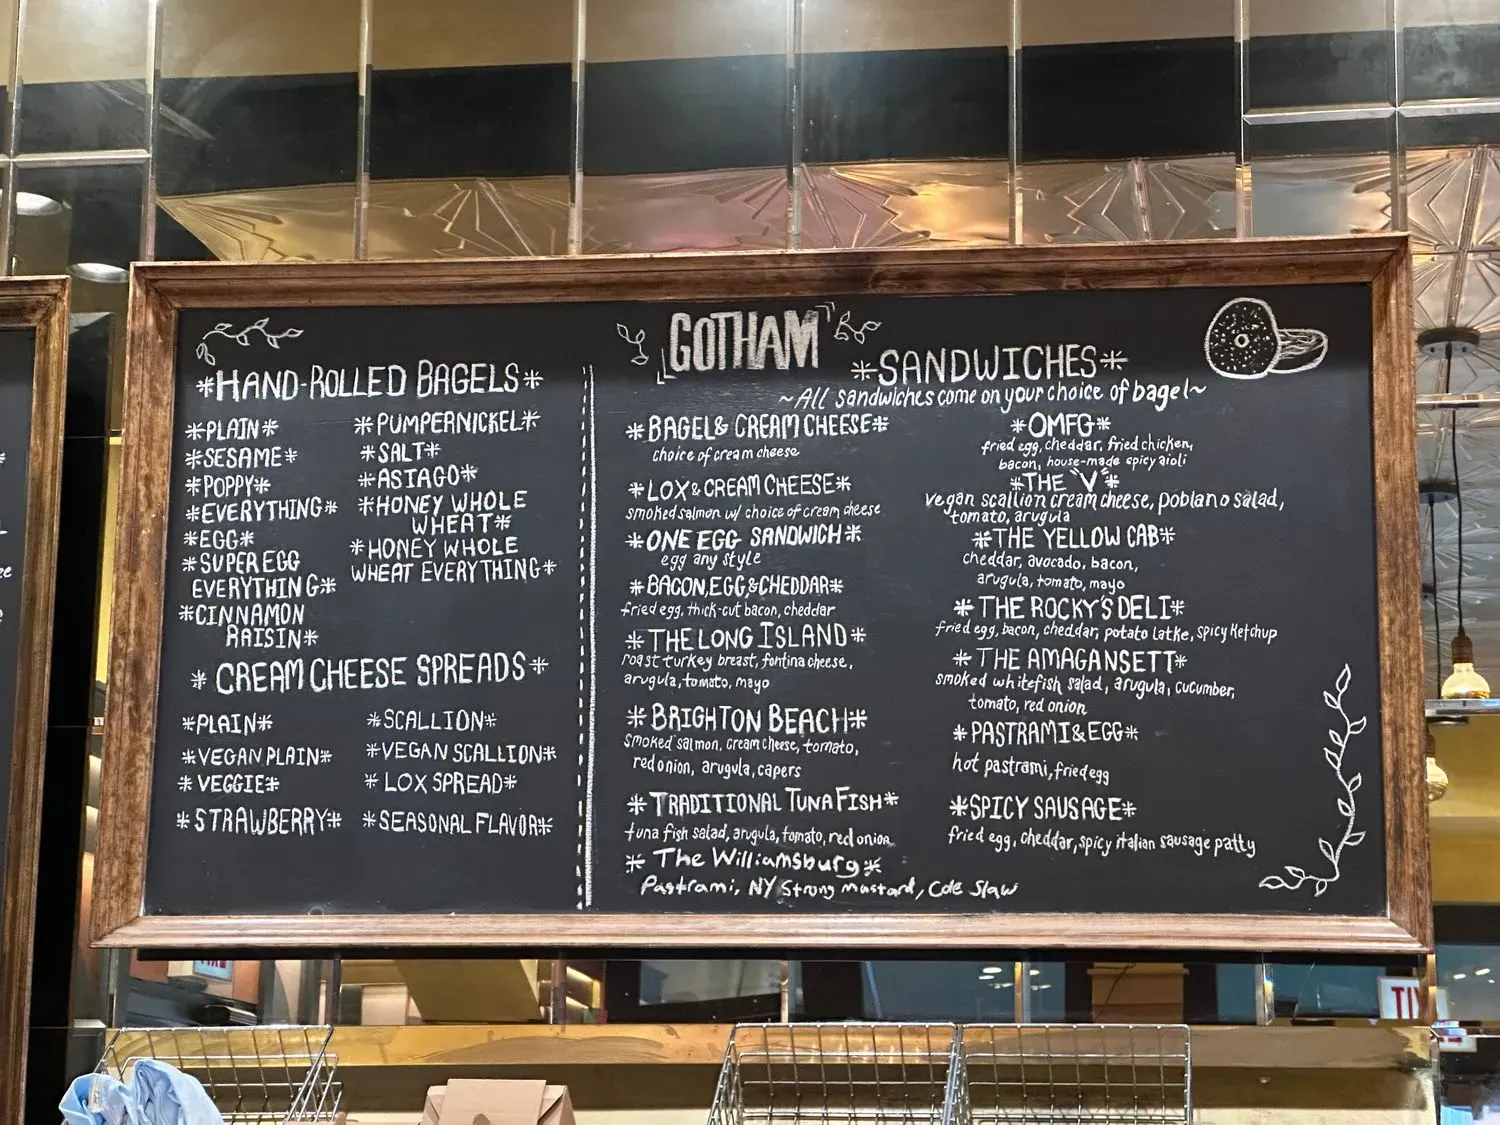 GOTHAM
*HAND-ROLLED BAGELS*
*PLAIN*
*SESAME*
*POPPY*
*EVERYTHING*
*EGG*
*SUPER EGG
EVERYTHING*
*CINNAMON
RAISIN*
*PUMPERNICKEL*
*SALT*
*ASIAGO*
*HONEY WHOLE
WHEAT*
*HONEY WHOLE
WHEAT EVERYTHING*
*CREAM CHEESE SPREADS*
*PLAIN*
*VEGAN PLAIN*
*VEGGIE*
*STRAWBERRY*
*SCALLION*
*VEGAN SCALLION*
*LOX SPREAD*
*SEASONAL FLAVOR*
*SANDWICHES*
~All sandwiches come on your choice of bagel~
*BAGEL & CREAM CHEESE*
choice of cream cheese
*LOX & CREAM CHEESE*
smoked salmon w/ choice of cream cheese
*ONE EGG SANDWICH*
egg any style
*BACON, EGG, & CHEDDAR*
fried egg, thick-cut bacon, cheddar
*THE LONG ISLAND*
roast turkey breast, fontina cheese,
arugula, tomato, mayo
*BRIGHTON BEACH*
smoked salmon, cream cheese, tomato,
red onion, arugula, capers
*TRADITIONAL TUNA FISH*
tuna fish salad, arugula, tomato, red onion
*The Williamsburg*
Pastrami, NY Strong mustard, Cole Slaw
*OMFG*
fried egg, cheddar, fried chicken,
bacon, house-made spicy aioli
*THE "V"*
vegan scallion cream cheese, poblano salad,
tomato, arugula
*THE YELLOW CAB*
cheddar, avocado, bacon,
arugula, tomato, mayo
*THE ROCKY'S DELI*
fried egg, bacon, cheddar, potato latke, spicy Ketchup
*THE AMAGANSETT*
smoked whitefish salad, arugula, cucumber,
tomato, red onion
*PASTRAMI & EGG*
hot pastrami, fried egg
*SPICY SAUSAGE*
fried egg, cheddar, spicy italian sausage patty